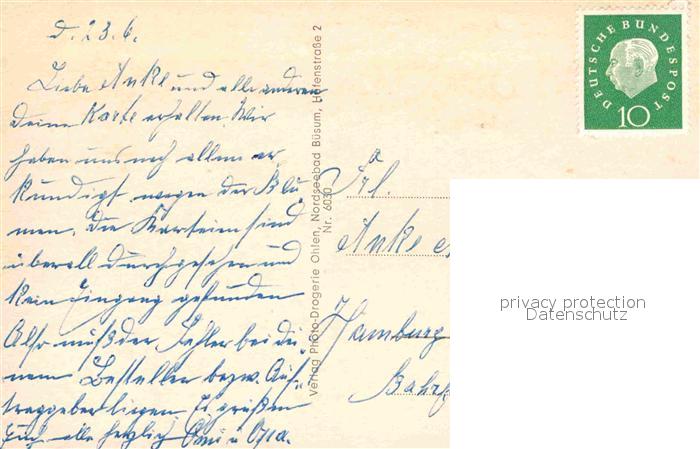 d. 23.6.
Liebe Anke und alle anderen
deine Karte erhalten. Wir
haben uns nach allem er
kundigt wegen der Blu
men, die Karteien sind
überall durchgesehen und
kein Eingang gefunden
Also muß der Fehler bei dei
nem Besteller bezw. Auf-
traggeber liegen. Es grüßen
Euch alle herzlich Omi u Opa.
Verlag Photo-Drogerie Ohlen, Nordseebad Büsum, Hafenstraße 2
Nr. 6030
DEUTSCHE BUNDESPOST
10
Frl.
Anke
Hamburg
privacy protection
Datenschutz